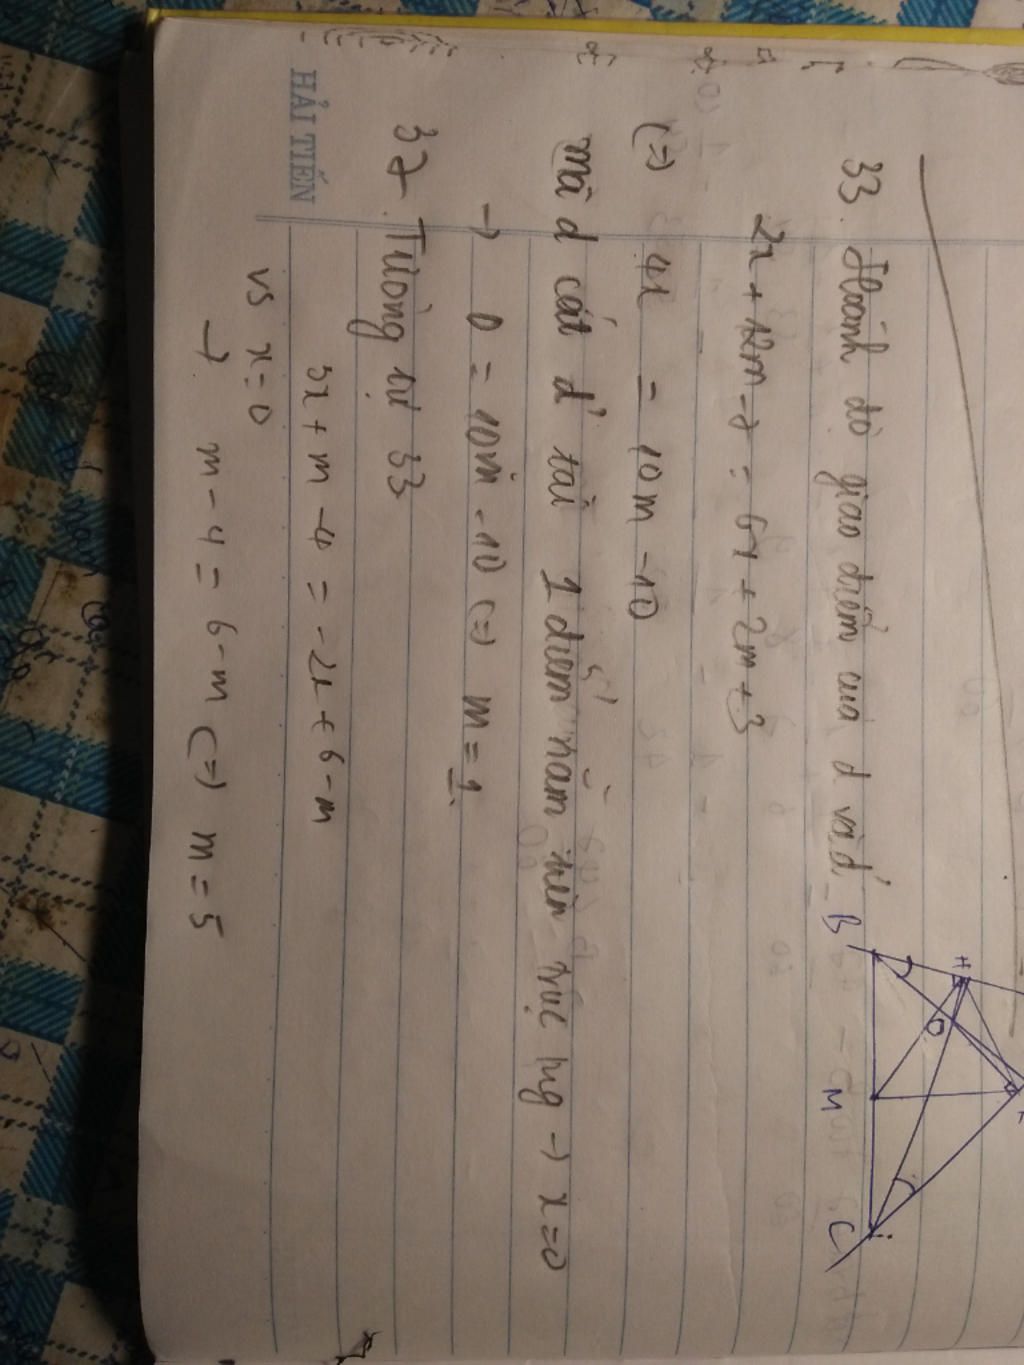 33. Hoành độ giao điểm của d và d'
2x + 12m - 7 = 6x + 2m + 3
(=) 4x = 10m - 10
mà d cắt d' tại 1 điểm nằm trên trục tung → x = 0
→ 0 = 10m - 10 (=) m = 1.
37. Tương tự 33
3x + m - 4 = -2x + 6 - m
vs x = 0
→ m - 4 = 6 - m (=) m = 5
B
H
O
M
C
HẢI TIẾN